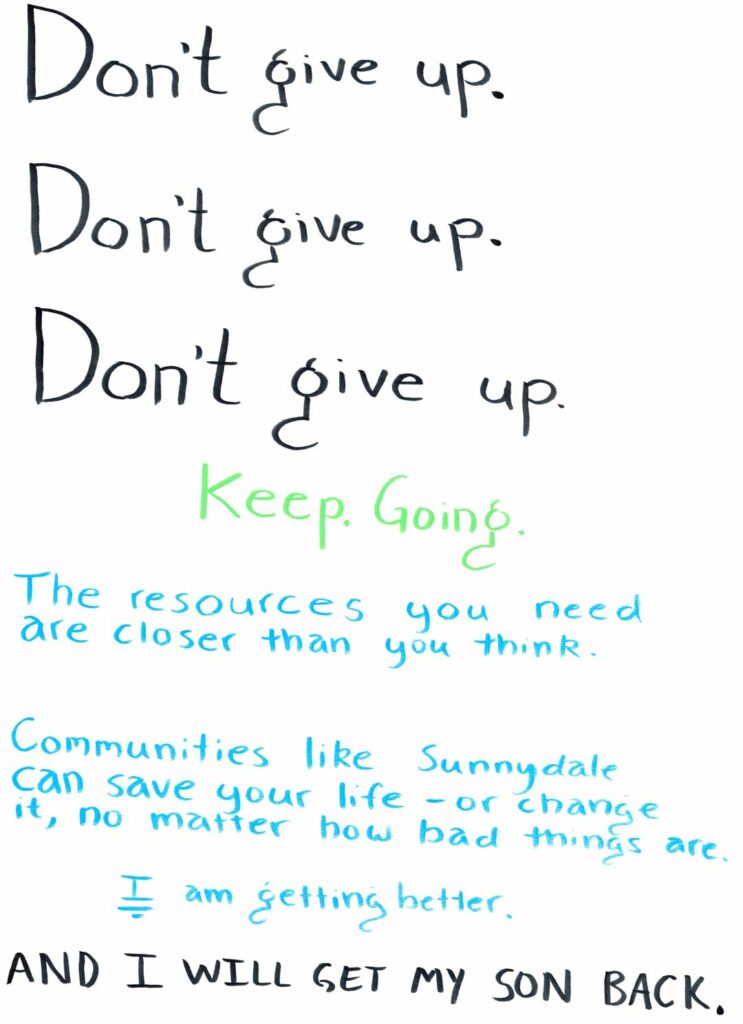 Don't give up.
Don't give up.
Don't give up.
Keep. Going.
The resources you need
are closer than you think.
Communities like Sunnydale
can save your life - or change
it, no matter how bad things are.
I am getting better.
AND I WILL GET MY SON BACK.